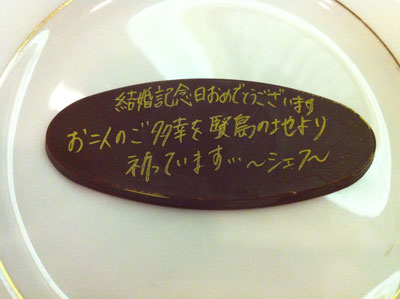 結婚記念日おめでとうございます
お二人のご多幸を賢島の地より
祈っています…〜シェフ〜